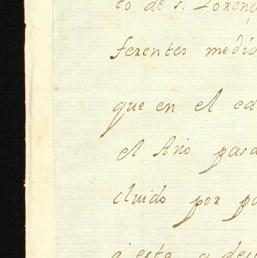 to de S. Loren
ferentes media
que en el ca
el Año pasa
cluido por pa